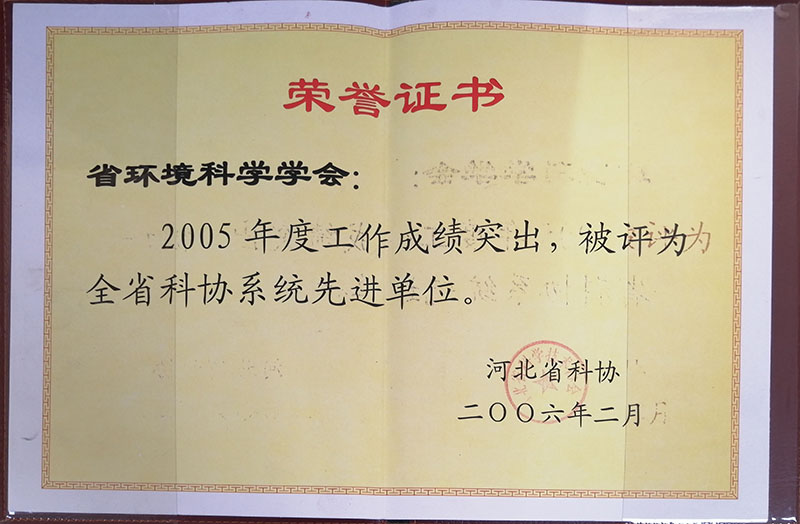 荣誉证书
省环境科学学会：
2005 年度工作成绩突出，被评为
全省科协系统先进单位。
河北省科协
二〇〇六年二月